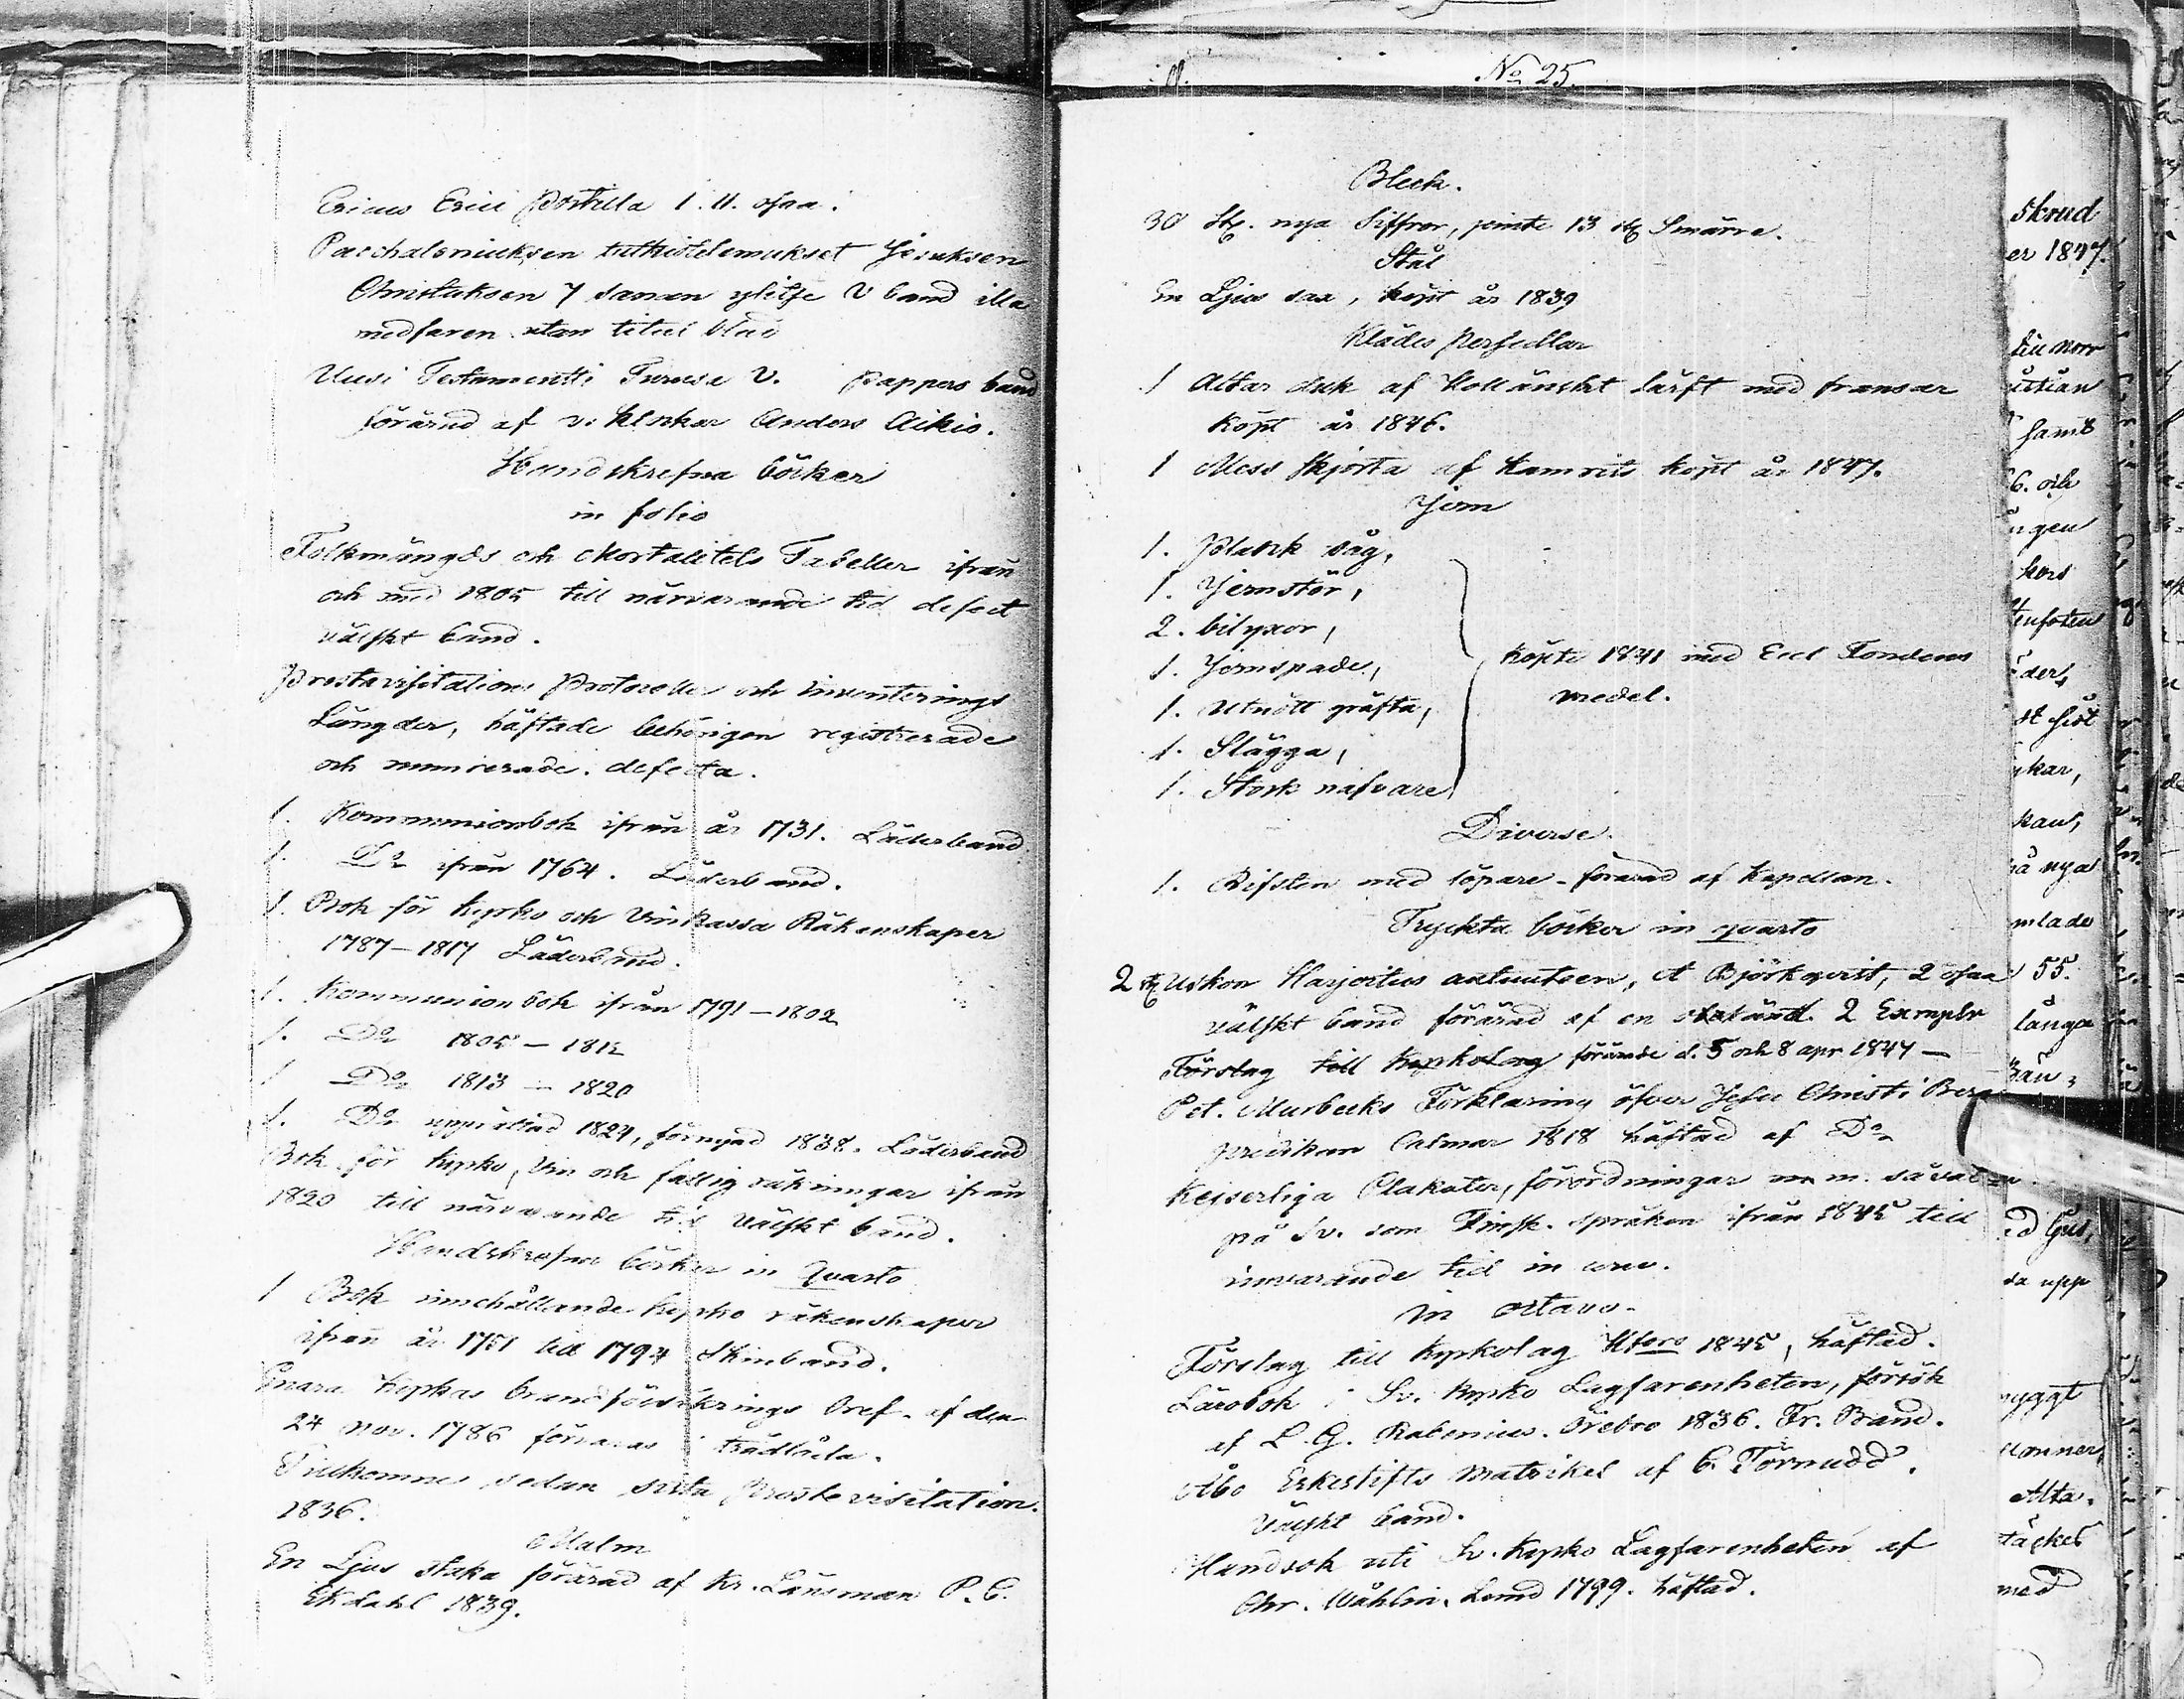 Ericus Erici Postilla 1. 11. osaa.
Paschalsniuksen tutkistelemukset Jesuksen
Christuksen 7 sanan ylitse V band illa
medfaren utan titul blad
Uusi Testamentti Turusa V. Pappers band
förärad af v. klockar Anders Aikio.
Handskrefna böcker
in folio
Folkmängds och Mortalitets Tabeller ifrån
och med 1805 till närvarande tid defect
välskt band.
Prostevisitations Protocoller och Inventerings
Längder, häftade behörigen registrerade
och numrerade. defecta.
1. Kommunionbok ifrån år 1731. Läderband
1. Do ifrån 1764. Läderband.
1. Bok för kyrko och Vinkassa Räkenskaper
1787-1817 Läderband.
1. Kommunionbok ifrån 1791-1802
1. Do 1805-1812
1 Do 1813-1820
1. Do upprättad 1824, förnyad 1838. Läderband
Bok för kyrko, Vin och fattig räkningar ifrån
1820 till närvarande tid Välskt band.
Handskrefna böcker in Quarto
1 Bok innehållande kyrko räkenskaper
ifrån år 1751 till 1794 Skinband.
Enara Kyrkas brandförsäkrings bref. af den
24 Nov. 1786 förvaras i trädlåda.
Tillkomne sedan sista Prostevisitation.
1836.
Malm
En Ljus staka förärad af Kr. Länsman P. C.
Ekdahl 1839.
No 25.
Bleck.
30 st. nya Siffror, jemte 13 st Smärre.
Stål
En Ljus sax, köpt år 1839
Klädes Persedlar
1 Altar duk af Hollänskt lärft med fransar
köpt år 1846.
1 Mess skjorta af Kamrits köpt år 1847.
Jern
1. Stock såg,
1. Jernstör,
2. bilyxor,
1. Jernspade,
1. Utnött gräfta,
1. Slägga,
1. Stock nafvare,
köpte 1841 med Eccl Fondens
medel.
Diverse.
1. Rifsten med löpare - förärad af Kapellan.
Tryckta böcker in quarto
2 st Uskon Harjoitus autuuteen, A Björkqvist, 2 osaa
välskt band förärad af en okänd. 2 Exemplr
Förslag till Kyrkolag förärade d. 5 och 8 apr 1847 —
Pet. Murbecks Förklaring öfver Jesu Christi Berg
predikan Calmar 1818 häftad af Do
Kejserliga Plakater, förordningar m. m. såväl
på Sv. som Finsk. språken ifrån 1845 till
nuvarande tid in
in octavo.
Förslag till Kyrkolag Hfors 1845, häftad.
Lärobok i Sv. Kyrko Lagfarenheten, försök
af L. G. Rabenius. Örebro 1836. Fr. Band.
Åbo Erkestifts Matrikel af C. Törnudd.
Välskt band.
Handbok uti Sv. Kyrko Lagfarenheten af
Chr. Wåhlin. Lund 1799. häftad.
skrud
er 1847.
samt
6. och
ngen
kors
kar,
mlade
55.
långa
da upp
yggt
Alta.
täcket
med